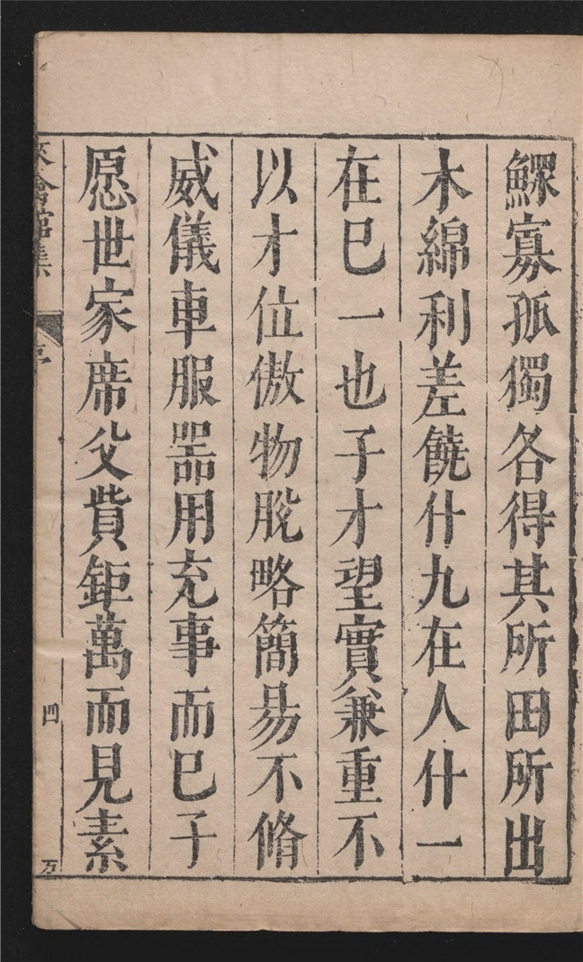 鰥寡孤獨各得其所田所出
木綿利差饒什九在人什一
在巳一也子才望實兼重不
以才位傲物脫略簡易不脩
威儀車服器用充事而巳子
愿世家席父貲鉅萬而見素
集
四
万